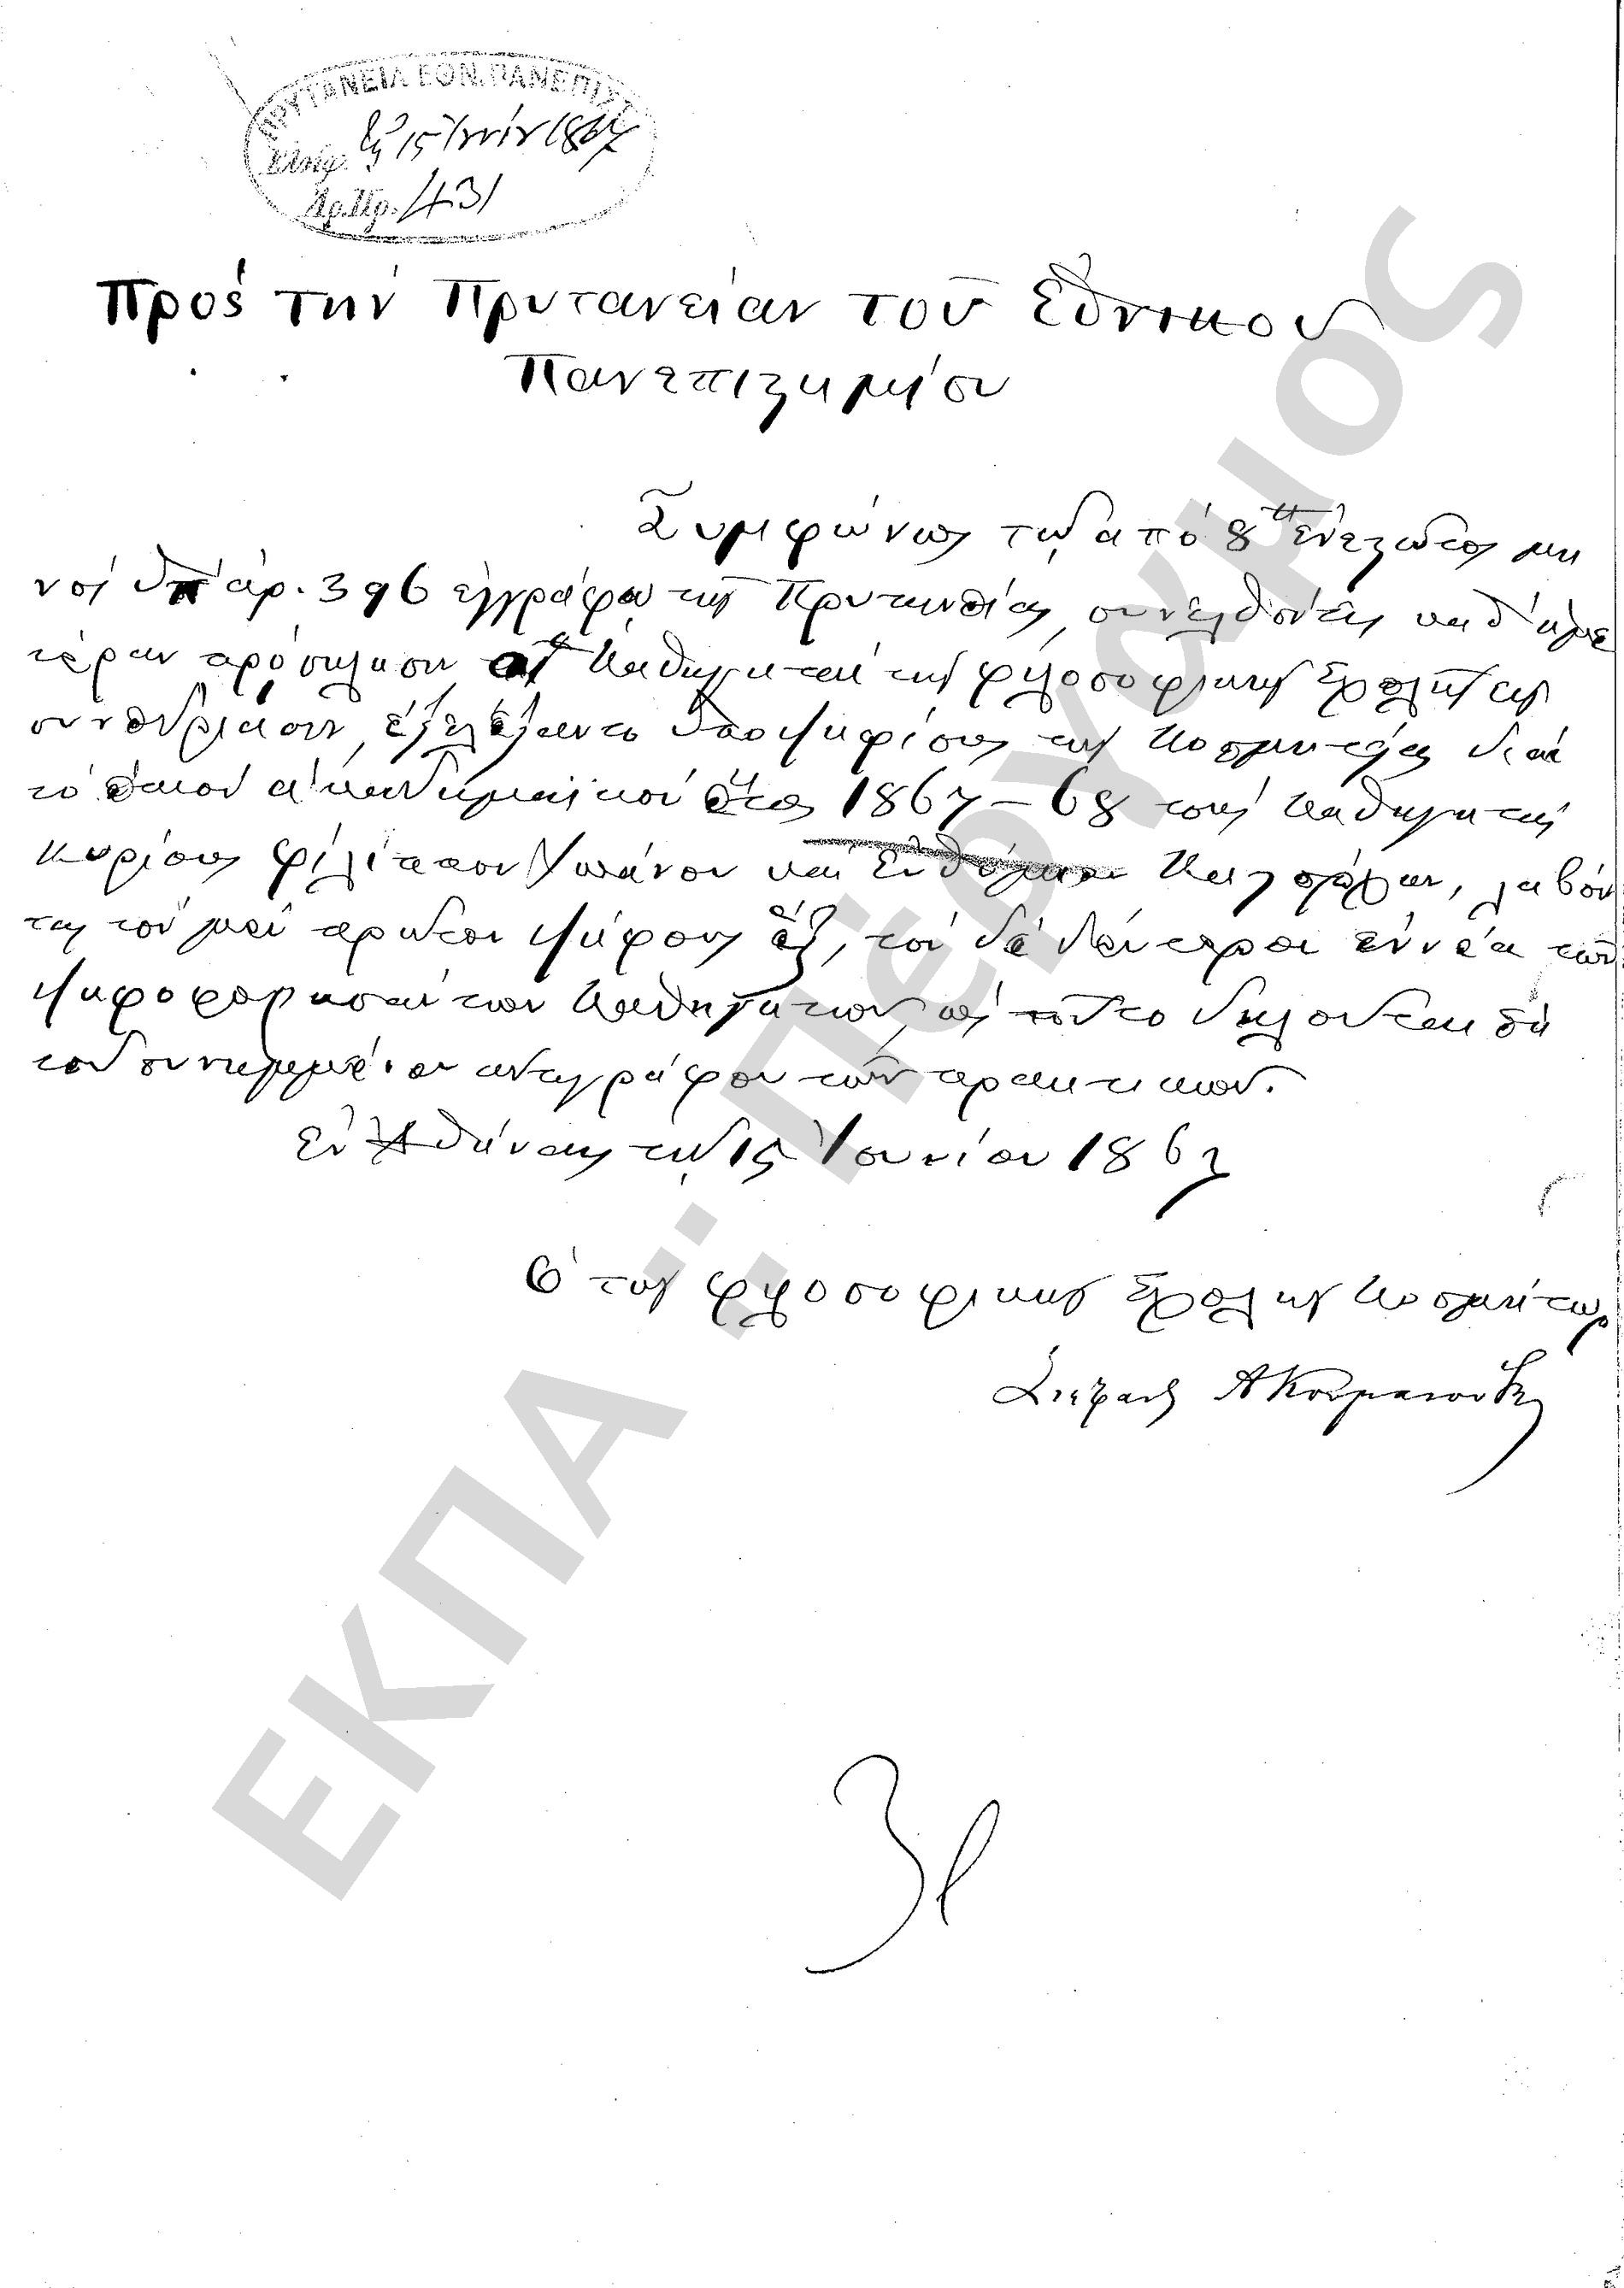 ΠΡΥΤΑΝΕΙΑ ΕΘΝ. ΠΑΝΕΠΙΣΤ
Ἐλήφ. τῇ 15 Ἰουνίου 1867
Ἀρ. Πρ. 1431
Πρὸς τὴν Πρυτανείαν τοῦ Ἐθνικοῦ
Πανεπιστημίου
Συμφώνως τῷ ἀπὸ 8 ἐνεστῶτος μη
νὸς ὑπ' ἀρ. 396 ἐγγράφῳ τῆς Πρυτανείας, συνελθόντες καθ' ἡμε
τέραν πρόσκλησιν οἱ καθηγηταὶ τῆς φιλοσοφικῆς Σχολῆς εἰς
συνεδρίασιν, ἐξελέξαντο ὑποψηφίους τῆς Κοσμητείας διὰ
τὸ ἐπιὸν ἀκαδημαϊκὸν ἔτος 1867 – 68 τοὺς καθηγητὰς
κυρίους Φίλιππον Ἰωάννου καὶ Εὐθύμιον Καστόρχην, λαβόν
τας τὸν μὲν πρῶτον ψήφους ἓξ, τὸν δὲ δεύτερον ἐννέα τῶν
ψηφοφορησάντων καθηγητῶν, ὡς τοῦτο δηλοῦται ἐκ
τοῦ συνημμένου ἀντιγράφου τῶν πρακτικῶν.
Ἐν Ἀθήναις τῇ 15 Ἰουνίου 1867
Ὁ τῆς φιλοσοφικῆς Σχολῆς Κοσμήτωρ
Στέφανος Α Κουμανούδης
ΕΚΠΑ :: Πέργαμος